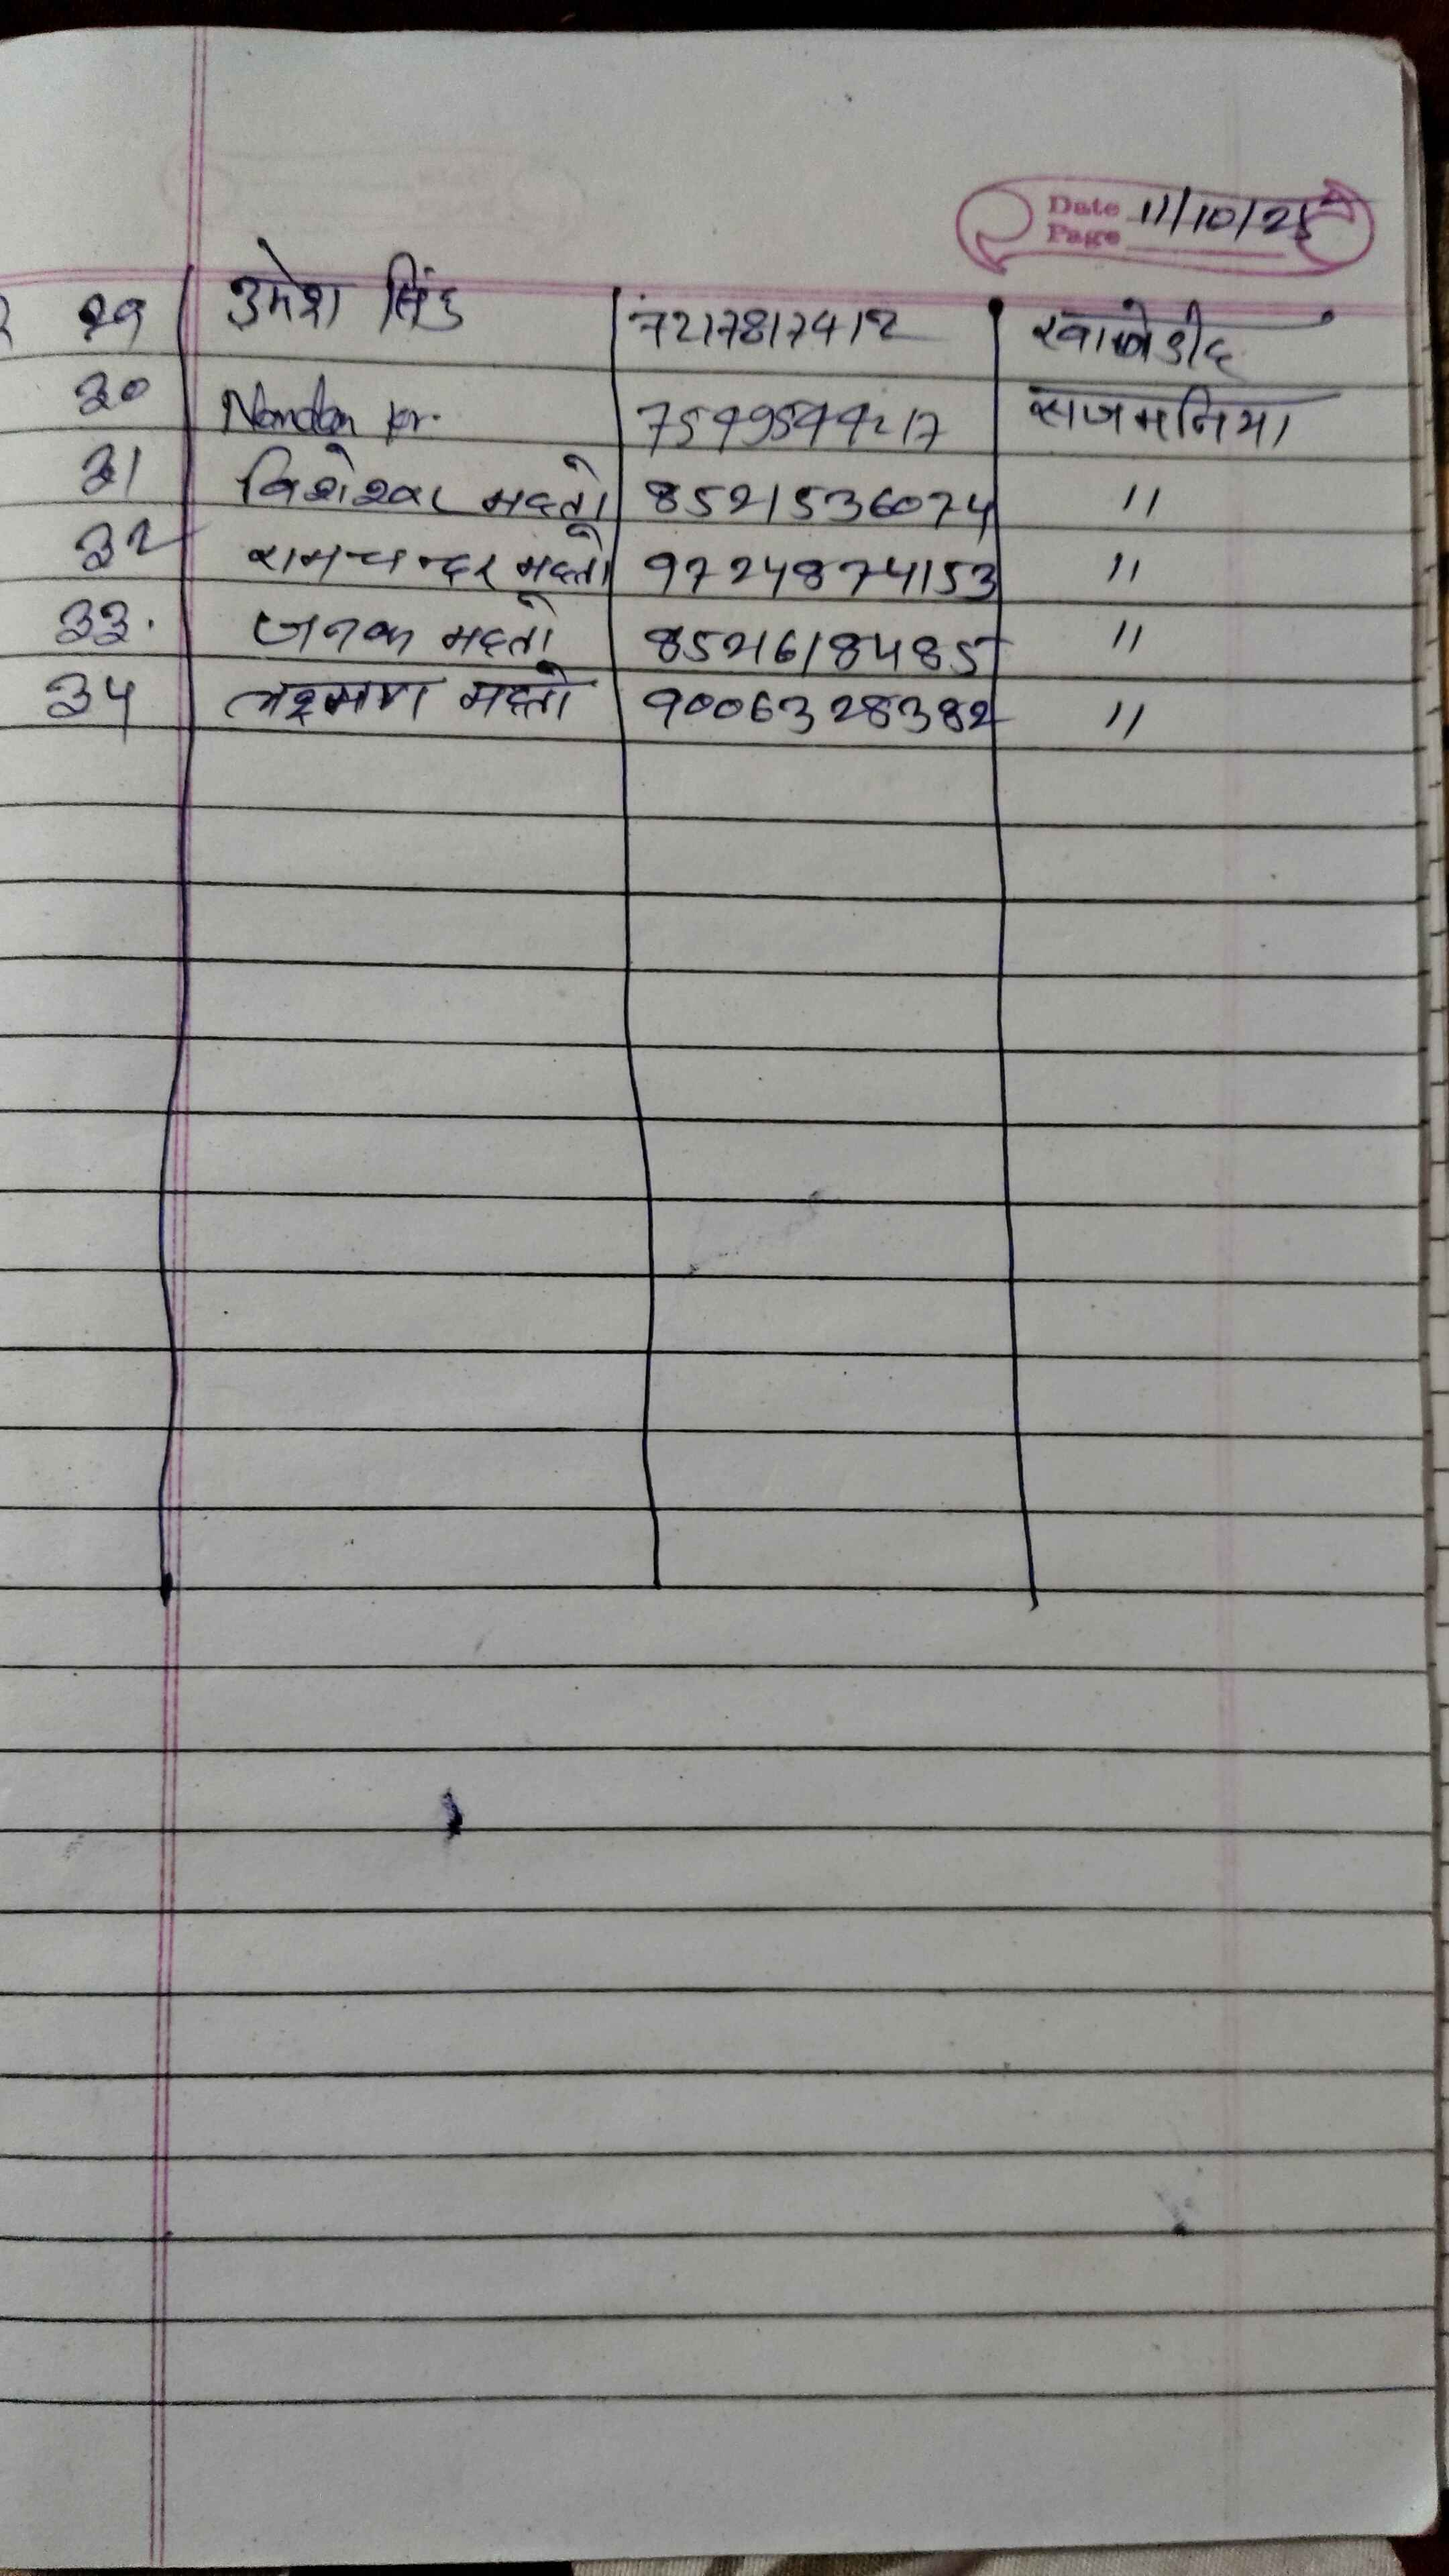 Date 11/10/25
Page
29 उमेश सिंह 7217817412
30 Nandan kr. 7549544217 राजमनिया
31 विशेश्वर महतो 8521536074 "
32 रामचन्दर महतो 9724874153 "
33. जनक महतो 8521618485 "
34 लक्ष्मण महतो 9006328382 "